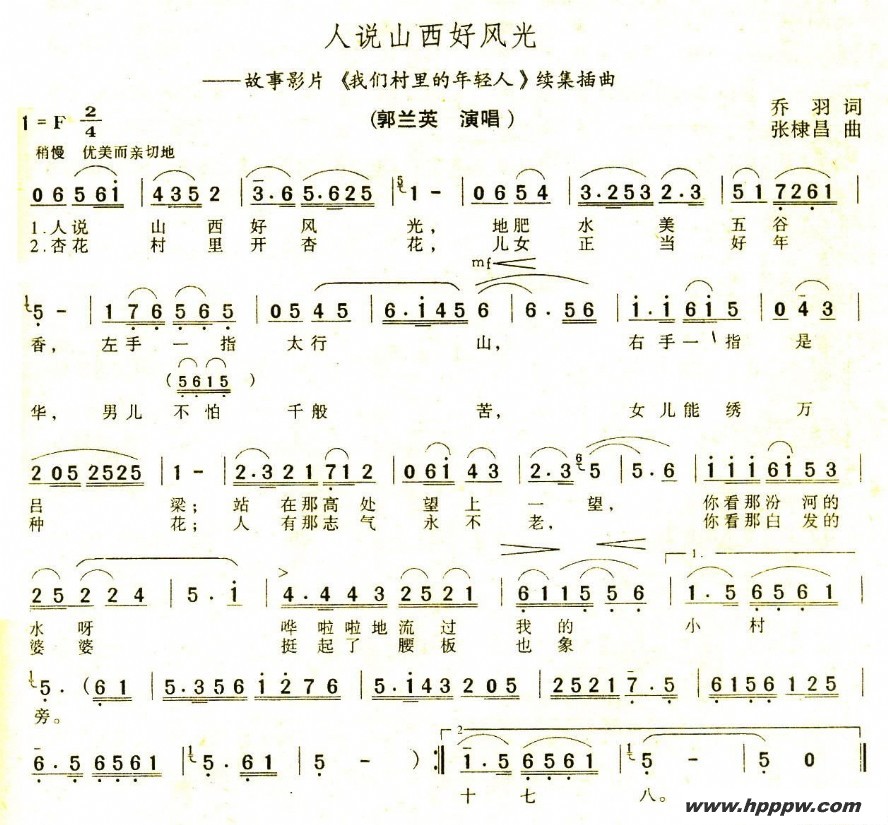 人说山西好风光
——故事影片《我们村里的年轻人》续集插曲
1=F 2/4
(郭兰英 演唱)
乔羽 词
张棣昌 曲
稍慢 优美而亲切地
0 6 5 6 i | 4 3 5 2 | 3·6 5·6 2 5 | 5 1 - | 0 6 5 4 | 3·2 5 3 2·3 | 5 1 7 2 6 1 |
1.人说 山西好风光，地肥水美五谷
2.杏花村里开杏花，儿女正当好年
mf
1 5 - | 1 7 6 5 6 5 | 0 5 4 5 | 6·i 4 5 6 | 6·5 6 | i·i 6 i 5 | 0 4 3 |
香，左手一指太行山，右手一指是
(5 6 1 5)
华，男儿不怕千般苦，女儿能绣万
2 0 5 2 5 2 5 | 1 - | 2·3 2 1 7 1 2 | 0 6 i 4 3 | 2·3 6 5 | 5·6 | i i i 6 i 5 3 |
吕梁；站在那高处望上一望，你看那汾河的
种花；人有那志气永不老，你看那白发的
1.
2 5 2 2 4 | 5·i | 4·4 4 3 2 5 2 1 | 6 1 1 5 5 6 | 1·5 6 5 6 1 |
水呀哗啦啦地流过我的小村
婆婆挺起了腰板也象
1 5·(6 1 | 5·3 5 6 i 2 7 6 | 5·i 4 3 2 0 5 | 2 5 2 1 7·5 | 6 1 5 6 1 2 5 |
旁。
6·5 6 5 6 1 | 1 5·6 1 | 5 - ) :| 2 1·5 6 5 6 1 | 1 5 - | 5 0 ‖
十七八。
www.hpppw.com